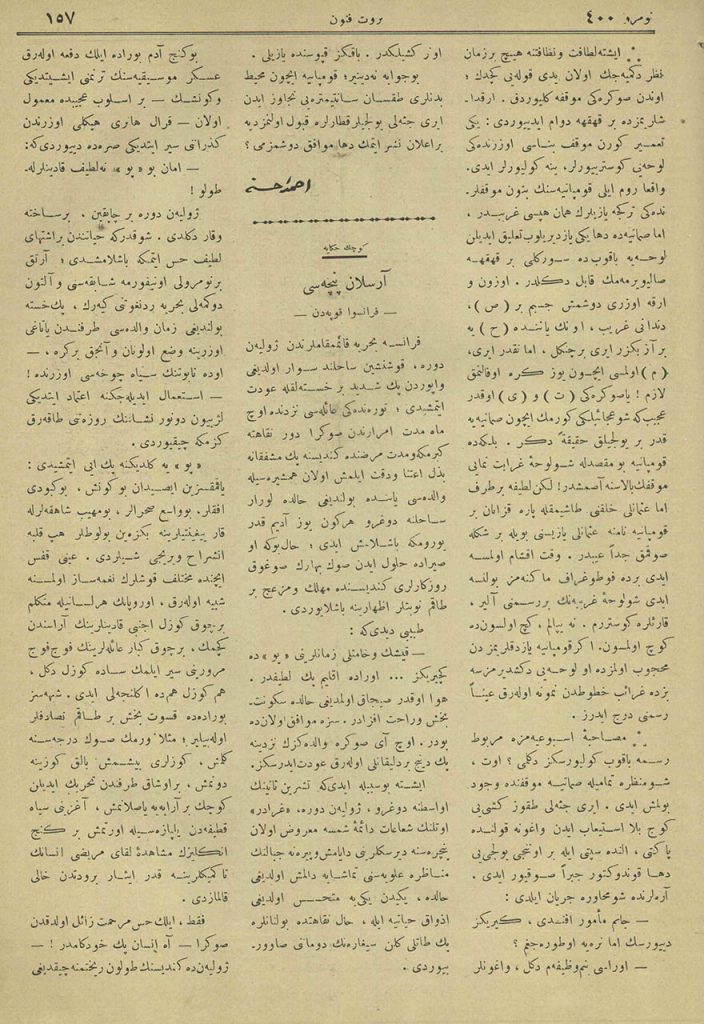 نومرو ٤٠٠
ثروت فنون
١٥٧
ایشته لطافت و نظافتنه هیچ بر زمان
نظر دکمیه‌جك اولان یدی قوله‌یی کچدك ؛
اوندن صوکره‌کی موقفه کلیوردق . ارقدا-
شلریمزده بر قهقهه دوام ایدییوردی : یکی
تعمیر کورن موقف بناسی اوزرنده‌کی
لوحه‌یی کوستریورلر، ینه کولیورلر ایدی.
واقعا روم ایلی قومپانیه‌سنك بتون موقفلر-
نده‌کی ترکجه یازیلرك همان هپسی غریبدر ،
اما صمانیه‌ده دها یکی یازدیریلوب تعلیق ایدیلن
لوحه‌یه باقوب‌ده سورکلی بر قهقهه
صالیویرمه‌مك قابل دکلدر . اوزون و
ارقه اوزری دوشمش جسیم بر ( ص )،
دندانی غریب ، اونك یاننده ( ح ) یه
بر آز بکزر ایری بر چنکل ، اما نقدر ایری،
( م ) اولمسی ایچون یوز کره اوفالتمق
لازم ! یا صوکره‌کی ( ت ) و ( ی ) او قدر
عجیب‌که شو عجائبلکی کورمك ایچون صمانیه‌یه
قدر بر یولجیلق حقیقةً دکر . بلکه‌ده
قومپانیه بو مقصدله شو لوحهٔ غرابت نمایی
موقفك بالاسنه آصمشدر! لکن لطیفه بر طرف
اما عثمانلی خلقنی طاشیمقله پاره قزانان بر
قومپانیه نامنه عثمانلی یازیسنی بویله بر شکله
صوقمق جداً عیبدر . وقت اقشام اولمسه
ایدی برده فوطوغراف ماکنه‌مز بولنسه
ایدی شو لوحهٔ غریبه‌نك بر رسمنی آلیر ،
قارئلره کوستررم . نه یپالم ، کچ اولسون‌ده
کوچ اولمسون. اکر قومپانیه یازدقلریمزدن
محجوب اولمزده او لوحه‌یی دکشدیرمزسه
بزده غرائب خطوطدن نمونه اوله‌رق عیناً
رسمنی درج ایدرز .
مصاحبهٔ اسبوعیه‌مزه مربوط
رسمه باقوب کولیورسکز دکلمی ؟ اوت ،
شو منظره تمامیله صمانیه موقفنده وجود
بولمش ایدی . ایری جثه‌لی طقوز کشی‌یی
کوج بلا استیعاب ایدن واغونه قولنده
پاکتی ، النده سپتی ایله بر اوننجی یولجی‌یی
دها قوندوکتور جبراً صوقیور ایدی .
آره‌لرنده شو محاوره جریان ایلدی :
— جانم مأمور افندی ، کیریکز
دییورسك اما نره‌یه اوطوره‌جغم ؟
— اوراسی بنم وظیفه‌م دکل ، واغونلر
اونر کشیلکدر . باقکز قپوسنده یازیلی .
بو جوابه نه‌دینیر؛ قومپانیه ایچون محیط
بدنلری طقسان سانتیمتره‌یی تجاوز ایدن
ایری جثه‌لی یولجیلر قطارلره قبول اولنمزدیه
بر اعلان نشر ایتمك دها موافق دوشمزمی ؟
احمد احسان
کوچك حکایه
آرسلان پنچه‌سی
— فرانسوا قوپه‌دن —
فرانسه بحریه قائممقاملرندن ژولیه‌ن
دوره ، قوشنشین ساحلنده سوار اولدیغی
واپوردن پك شدید بر خسته‌لقله عودت
ایتمشیدی ؛ تورنده‌کی عائله‌سی نزدنده اوچ
ماه مدت امراردن صوکرا دور نقاهته
کیرمکه ومدت مرضنده کندیسنه پك مشفقانه
بذل اعتنا ودقت ایلمش اولان همشیره‌سیله
والده‌سی یاننده بولندیغی حالده لورار
ساحلنه دوغرو هرکون یوز آدیم قدر
یورومکه باشلامش ایدی ؛ حال‌بوکه او
صیراده حلول ایدن صوك بهارك صوغوق
روزکارلری کندیسنده مهلك و مزعج بر
طاقم نوبتلر اظهارینه باشلایوردی .
طبیبی دیدی‌که :
— قیشك وخامتلی زمانلرینی « پو »ده
کچیریکز ... اوراده اقلیم پك لطیفدر .
هوا اوقدر صیجاق اولمدیغی حالده سکونت-
بخش و راحت افزادر . سزه موافق اولان‌ده
بودر . اوچ آی صوکره والده‌کزك نزدینه
پك دینج بر دلیقانلی اوله‌رق عودت ایدرسکز.
ایشته بو سببله ایدی‌که تشرین ثانینك
اواسطنه دوغرو ، ژولیه‌ن دوره، «غرادر»
اوتلنك شعاعات دائمهٔ شمسه معروض اولان
پنجره‌سنه دیرسکلرینی دایامش وپیره‌نه جبالنك
مناظره علویه‌سنی تماشایه دالمش اولدیغی
حالده ، یکیدن یکی‌یه متحسس اولدیغی
اذواق حیاتیه ایله ، حال نقاهتده بولنانلره
پك طاتلی کلن سیغاره‌نك دومانی صاوور-
ییوردی .
بو کنج آدم بوراده ایلك دفعه اوله‌رق
عسکر موسیقه‌سنك ترنمنی ایشیتدیکی
وکونشك — بر اسلوب عجیبده معمول
اولان — قرال هانری هیکلی اوزرندن
کذرانی سیر ایتدیکی صره‌ده دییوردی‌که:
— امان بو « پو » نه لطیف قادینلرله
طولو !
ژولیه‌ن دوره بر چاپقین . بر ساخته
وقار دکلدی . شوقدرکه حیاتندن بر اشتهای
لطیف حس ایتمکه باشلامشدی ؛ آرتق
بر نومرولی اونیفورمه شاپقه‌سنی و آلتون
دوکمه‌لی بحریه ردنغوتنی کیه‌رك ، پك خسته
بولندیغی زمان والده‌سی طرفندن یاتاغی
اوزرینه وضع اولونان و آنجق بر کره ، —
اوده تابوتنك سیاه چوخه‌سی اوزرنده !
— استعمال ایدیله‌جکنه اعتماد ایتدیکی
لژییون دونور نشاننك روزه‌تنی طاقه‌رق
کزمکه چیقیوردی .
« پو » یه کلدیکنه پك ایی ایتمشیدی :
یاقمقسزین ایصیدان بو کونش ، بو کبودی
افقلر، بو واسع صحرالر ، بو مهیب شاهقه‌لرله
قار ییغینتیلرینه بکزه‌ین بولوطلر هپ قلبه
انشراح ویریجی شیلردی . عینی قفس
ایچنده مختلف قوشلرك نغمه‌ساز اولمسنه
شبیه اوله‌رق ، اوروپانك هر لسانیله متکلم
بر چوق کوزل اجنبی قادینلرینك آراسندن
کچمك ، بر چوق کبار عائله‌لرینك فوج فوج
مرورینی سیر ایلمك ساده کوزل دکل ،
هم کوزل هم‌ده اکلنجه‌لی ایدی . شبهه‌سز
بوراده‌ده قسوت بخش بر طاقم تصادفلر
اوله‌بیلیر ؛ مثلا ورمك صوك درجه‌سنه
کلمش ، کوزلری پیشمش بالق کوزینه
دونمش ، بر اوشاق طرفندن تحریك ایدیلن
کوچك بر آرابه‌یه یاصلانمش ، آغزینی سیاه
قطیفه‌دن یلپازه‌سیله اورتمش بر کنج
انکلیزك مشاهدهٔ لقای مریضی انسانك
تا کمیکلرینه قدر ایشلر برودتدن خالی
قالمازدی .
فقط ، ایلك حس مرحمت زائل اولدقدن
صوکرا — آه انسان پك خودکامدر ! —
ژولیه‌ن‌ده کندیسنك طولون ریختمنه چیقدیغی